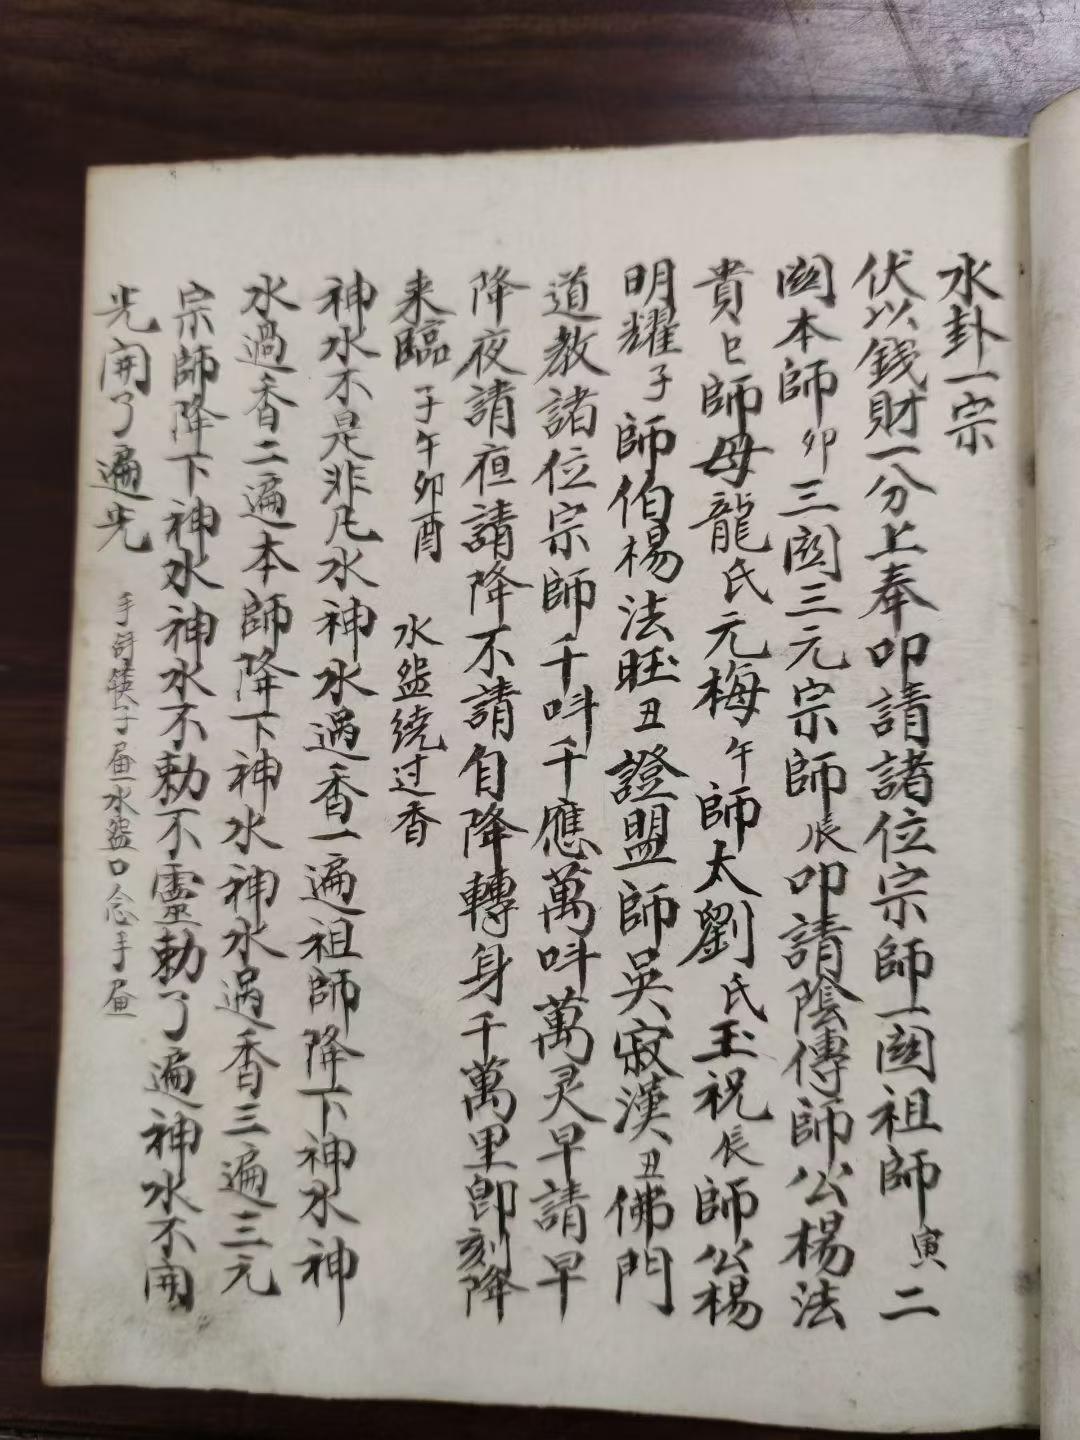 水卦一宗
伏以錢財一分上奉叩請諸位宗師一関祖師寅二
関本師卯三関三元宗師辰叩請陰傳師公楊法
貴巳師母龍氏元梅午師太劉氏玉祝辰師公楊
明耀子師伯楊法旺丑證盟師吳寂漢丑佛門
道教諸位宗師千呌千應萬呌萬灵早請早
降夜請夜請降不請自降轉身千萬里即刻降
来臨子午卯酉 水盆绕过香
神水不是非凡水神水過香一遍祖師降下神水神
水過香二遍本師降下神水神水過香三遍三元
宗師降下神水神水不勅不靈勅了遍神水不開
光開了遍光 手筷子水盆口念手